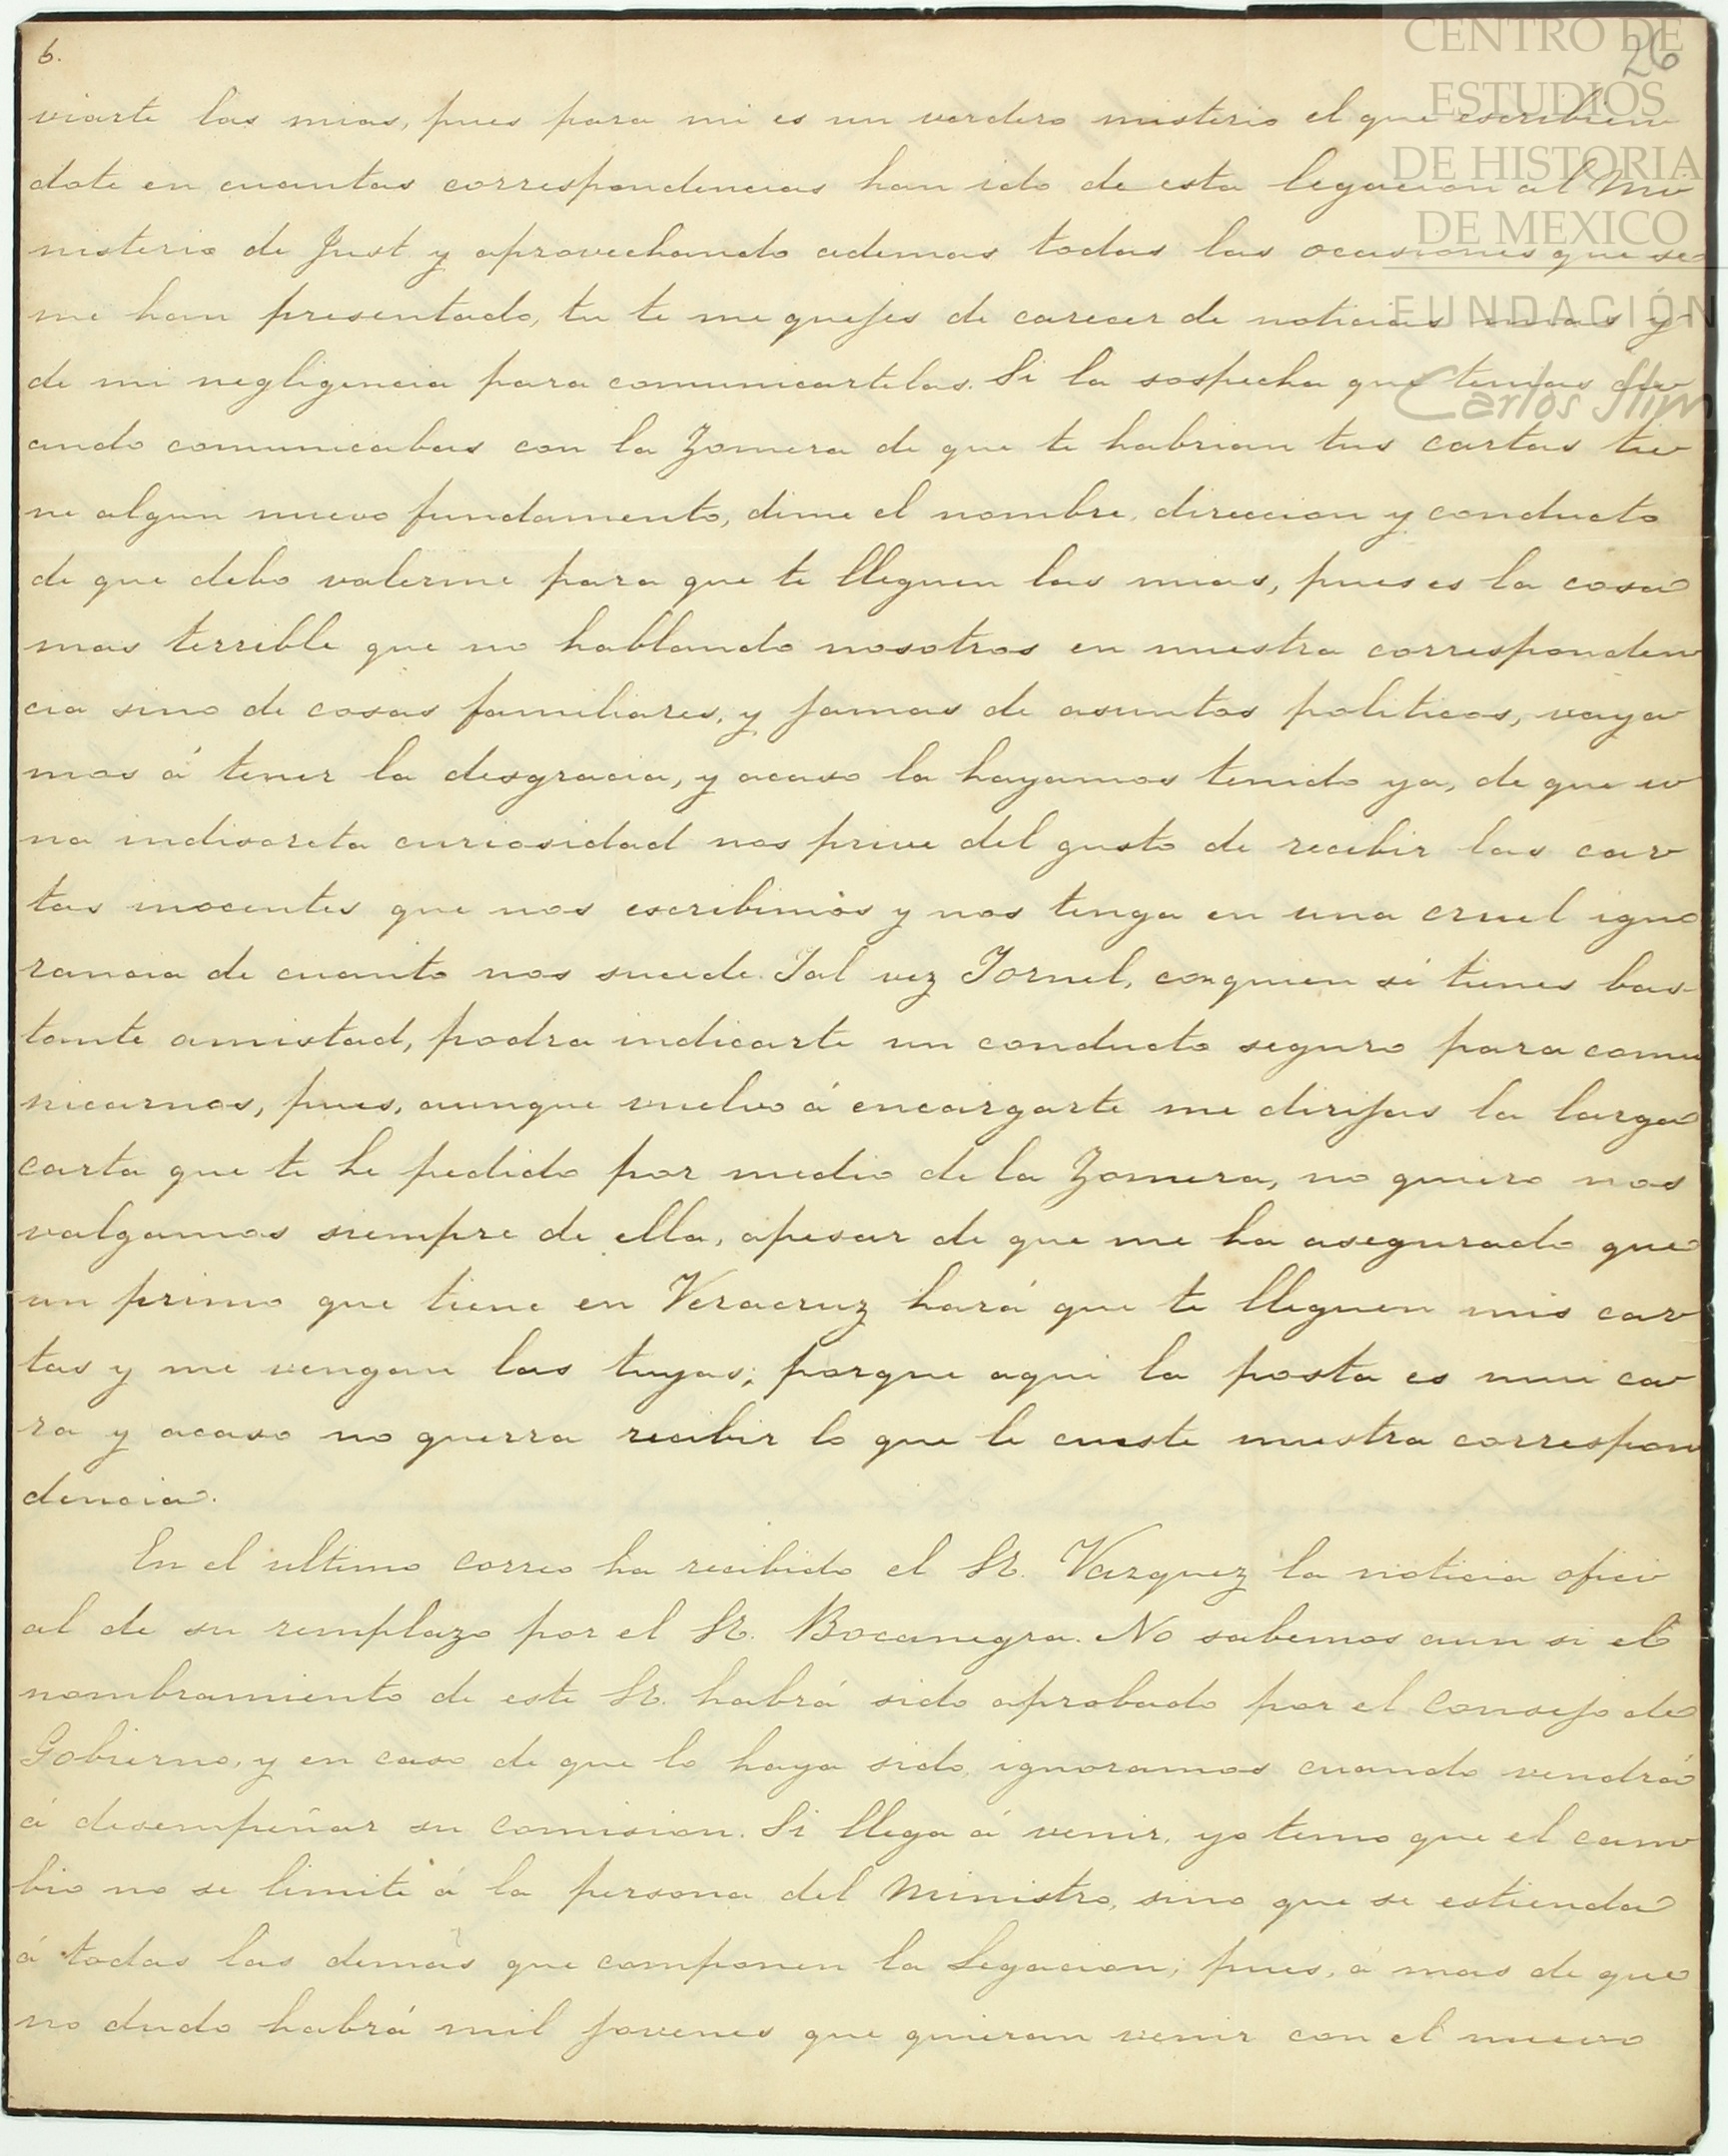 6.
26
CENTRO DE
ESTUDIOS
DE HISTORIA
DE MEXICO
FUNDACIÓN
Carlos Slim
viarte las mias, pues para mi es un verdero misterio el que escribien
dote en cuantas correspondencias han ido de esta legacion al Mi
nisterio de Just. y aprovechando ademas todas las ocasiones que se
me han presentado, tu te me quejes de carecer de noticias mias y
de mi negligencia para comunicartelas. Si la sospecha que tenias cu
ando comunicabas con la Zomera de que te habrian tus cartas tie
ne algun nuevo fundamento, dime el nombre, direccion y conducto
de que debo valerme para que te lleguen las mias, pues es la cosa
mas terrible que no hablando nosotros en nuestra corresponden
cia sino de cosas familiares, y jamas de asuntos politicos, vaya
mos á tener la desgracia, y acaso la hayamos tenido ya, de que u
na indiscreta curiosidad nos prive del gusto de recibir las car
tas inocentes que nos escribimos y nos tenga en una cruel igno
rancia de cuanto nos sucede. Tal vez Tornel, con quien sé tienes bas-
tante amistad, podra indicarte un conducto seguro para comu
nicarnos, pues, aunque vuelvo á encargarte me dirijas la larga
carta que te he pedido por medio de la Zomera, no quiero nos
valgamos siempre de ella, apesar de que me ha asegurado que
un primo que tiene en Veracruz hará que te lleguen mis car
tas y me vengan las tuyas; porque aqui la posta es mui ca
ra y acaso no querra recibir lo que le cueste nuestra correspon
dencia.
En el ultimo correo ha recibido el Sr. Vazquez la noticia ofici
al de su remplazo por el Sr. Bocanegra. No sabemos aun si el
nombramiento de este Sr. habrá sido aprobado por el Consejo de
Gobierno, y en caso de que lo haya sido, ignoramos cuando vendrá
á desempeñar su comision. Si llega á venir, yo temo que el cam
bio no se limite á la persona del Ministro, sino que se estienda
á todas las demas que componen la Legacion; pues, á mas de que
no dudo habrá mil jovenes que quieran venir con el nuevo